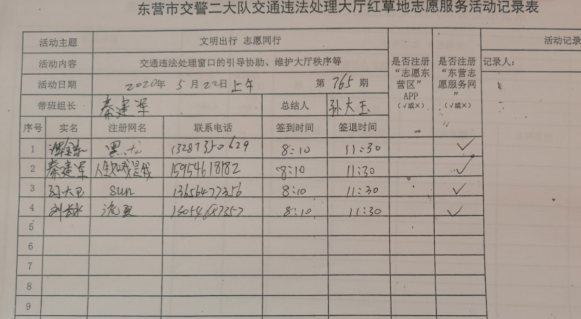 东营市交警二大队交通违法处理大厅红草地志愿服务活动记录表
活动主题 文明出行 志愿同行 是否注册“志愿东营区”APP（√或×） 是否注册“东营志愿服务网”（√或×） 活动记录
活动内容 交通违法处理窗口的引导协助、维护大厅秩序等 记录人：
活动日期 2020年5月22日上午 第765期
带班组长 秦建军 总结人 孙大玉
序号 实名 注册网名 联系电话 签到时间 签退时间
1 黑 8:10 11:30 ✓
2 秦建军 15954618182 8:10 11:30 ✓
3 孙大玉 sun 8:10 11:30 ✓
4 8:10 11:30 ✓
5
6
7
8
9